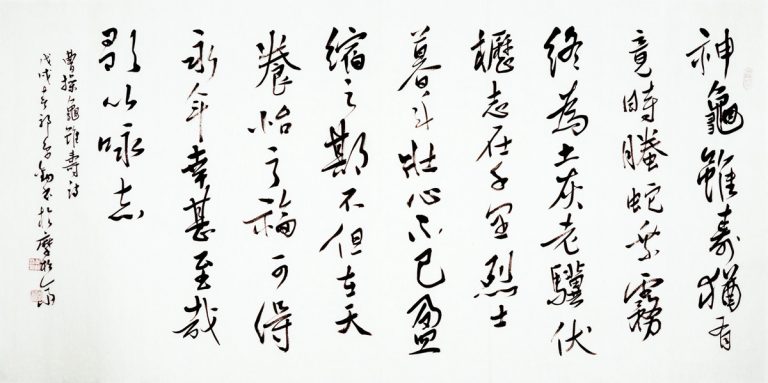 神龜雖壽猶有
竟時騰蛇乘霧
終為土灰老驥伏
櫪志在千里烈士
暮年壯心不已盈
縮之期不但在天
養怡之福可得
永年幸甚至哉
歌以咏志
曹操龜雖壽詩
戊戌年